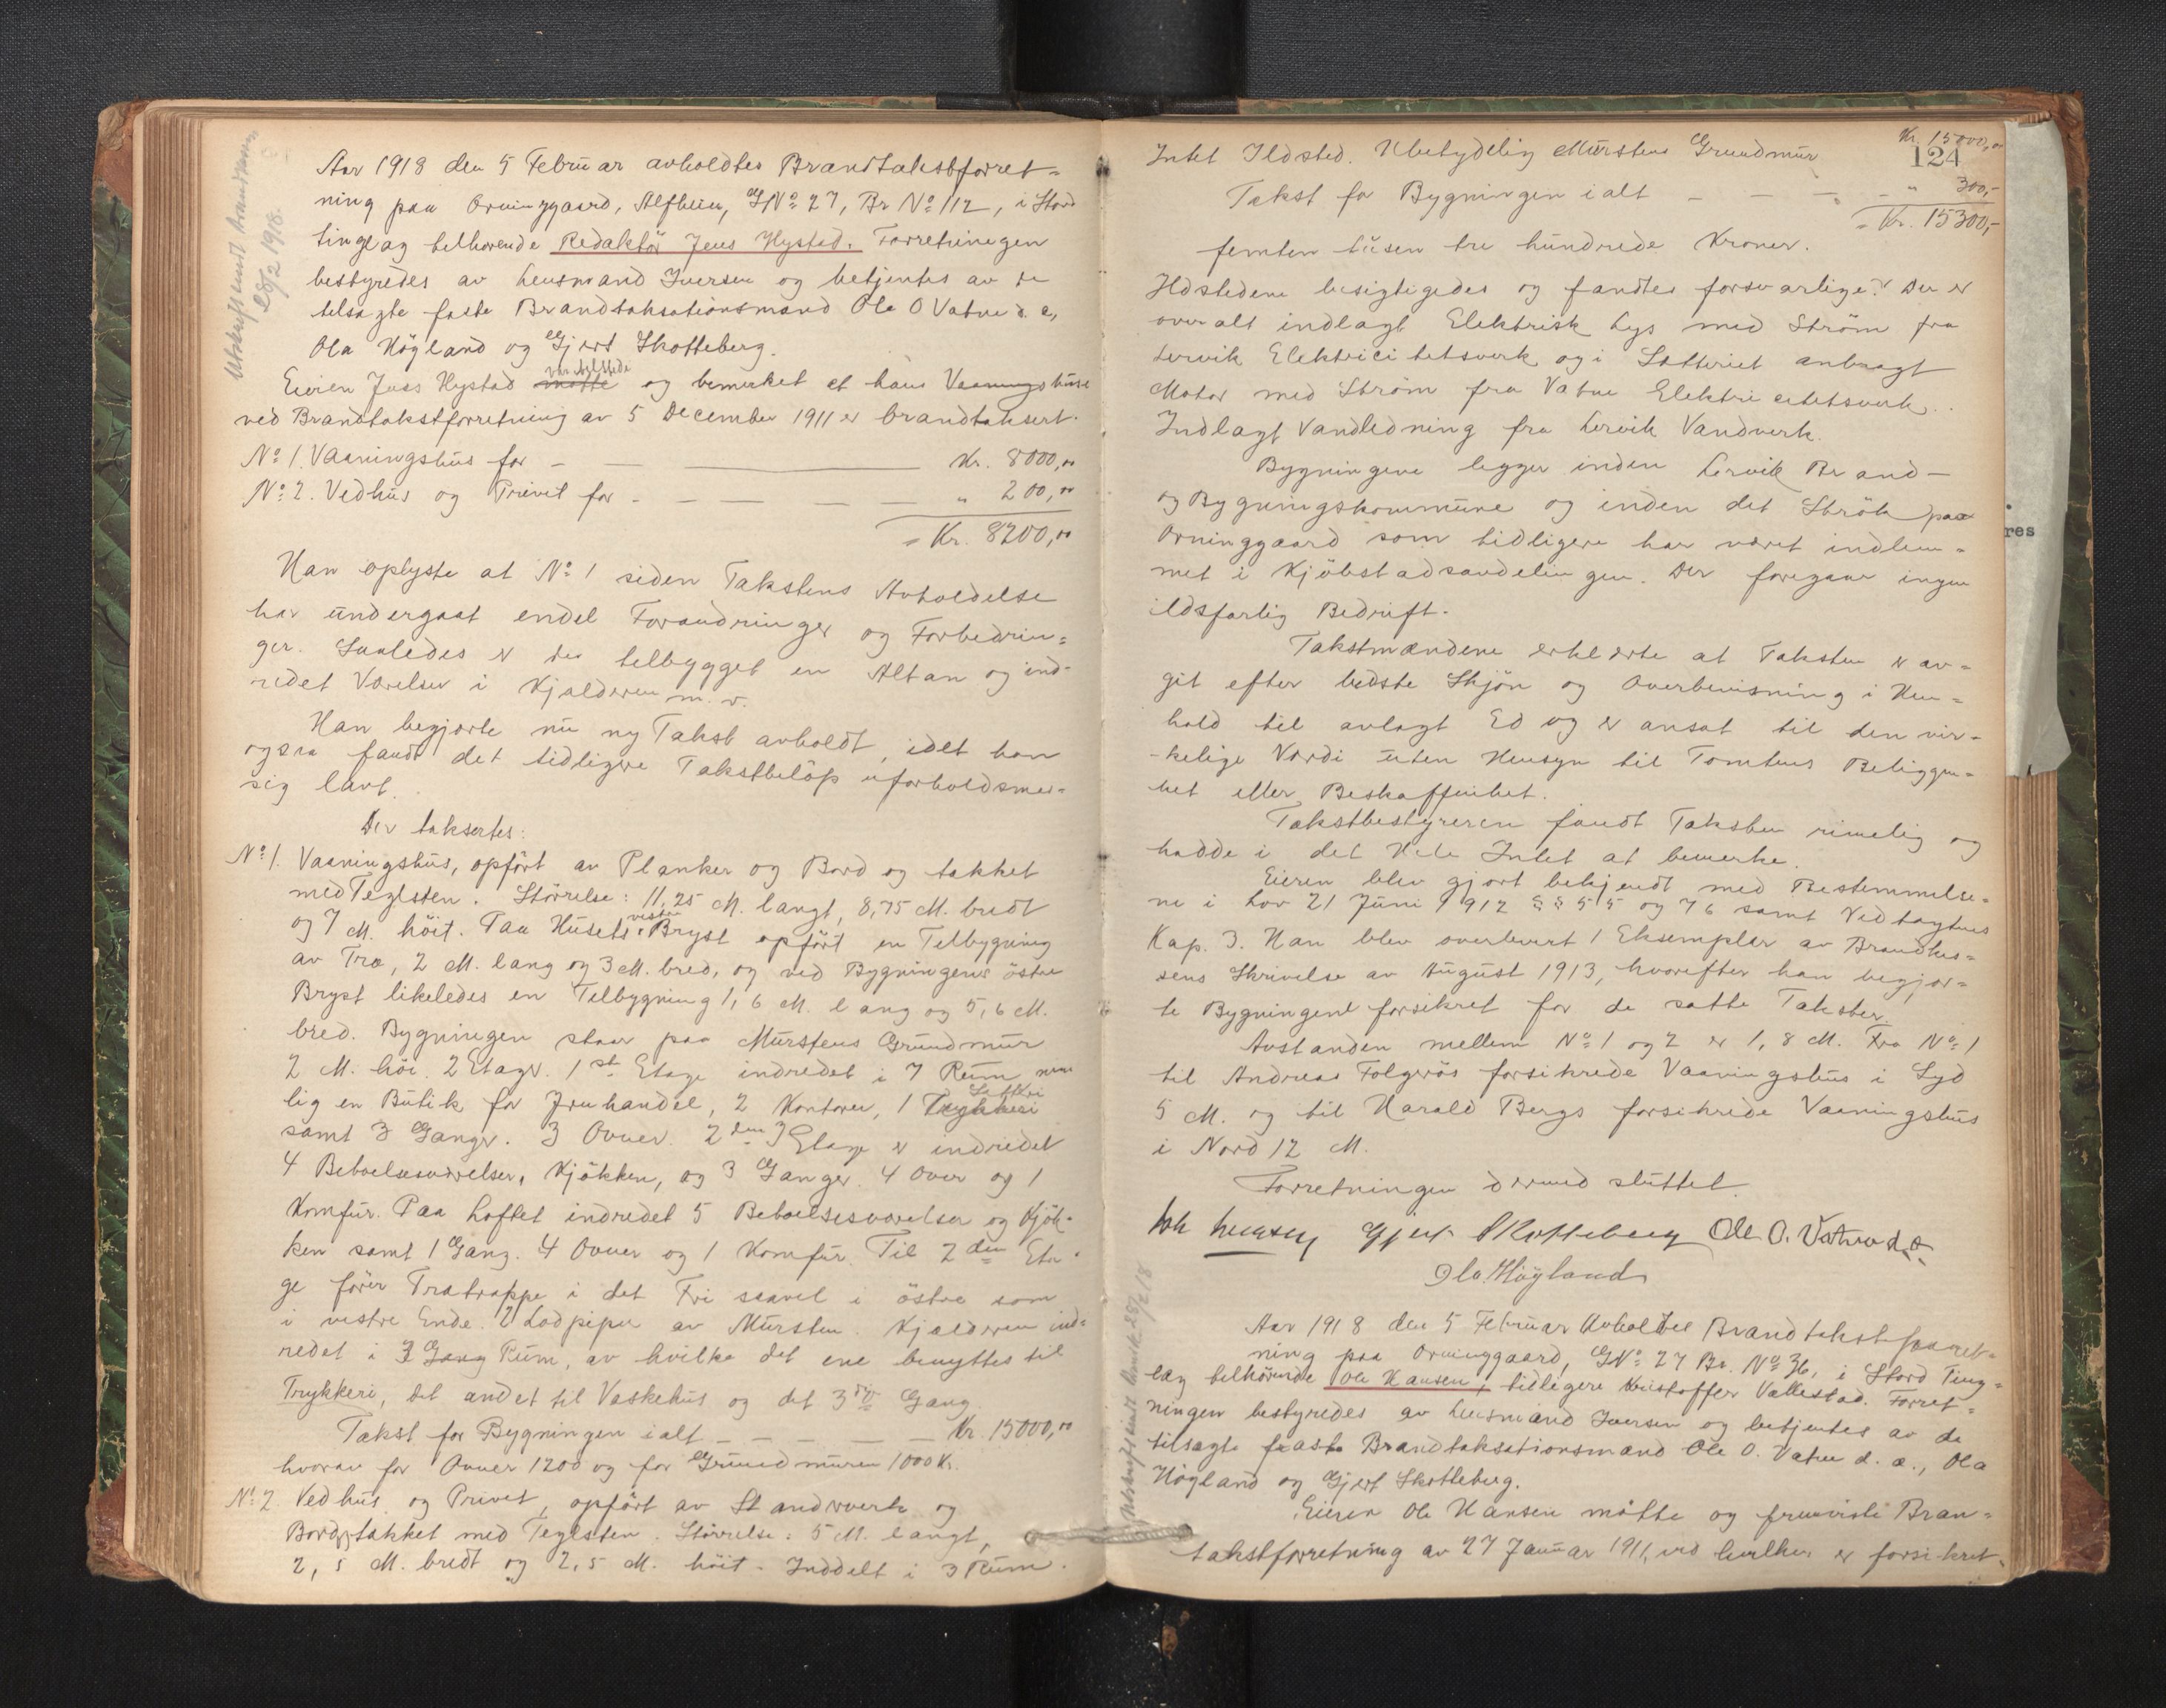 Utskrift sendt brandkassen
28/2 1918.
Aar 1918 den 5 Februar avholdtes Brandtakstforret-
ning paa Orninggaard, Alfheim, GNo 27, Br No 112, i Stord
tinglag tilhørende Redaktör Jens Hystad. Forretningen
bestyredes av Lensmand Iversen og betjentes av de
tilsagte faste Brandtaksationsmænd Ole O Vatne d. e,
Ola Högland og Gjert Skotteberg.
var tilstede
Eieren Jens Hystad møtte og bemerket at hans Vaaningshus
ved Brandtakstforretning av 5 December 1911 er brandtaksert.
No 1. Vaaningshus for - — — Kr. 8000,00
No 2. Vedhus og Privet for - — — — — " 200,00
= Kr. 8200,00
Han oplyste at No 1 siden Takstens Avholdelse
har undergaat endel Forandringer og Forbedrin=
ger. Saaledes er der tilbygget en Altan og ind-
redet Værelser i Kjælderen m. v.
Han begjærte nu ny Takst avholdt, idet han
ogsaa fandt det tidligere Takstbelöp uforholdsmæs=
sig lavt.
Der taksertes:
No 1. Vaaningshus, opfört av Planker og Bord og takket
med Teglsten. Störrelse: 11,25 M. langt, 8,75 M. bredt
og 7 M. höit. Paa Husets vestre Bryst opfört en Tilbygning
av Træ, 2 M. lang og 3 M. bred, og ved Bygningens östre
Bryst likeledes en Tilbygning 1,6 M. lang og 5,6 M.
bred. Bygningen staar paa Murstens Grundmur
2 M. höi. 2 Etager. 1st Etage indredet i 7 Rum nem
lig en Butik for Jernhandel, 2 Kontorer, 1 Trykkeri Sætteri
samt 3 Ganger. 3 Ovner. 2den Etage er indredet
4 Beboelsesværelser, Kjökken, og 3 Ganger. 4 Ovner og 1
Komfur. Paa Loftet indredet 5 Beboelsesværelser og Kjök-
ken samt 1 Gang. 4 Ovner og 1 Komfur. Til 2den Eta-
ge förer Trætrappe i det Fri saavel i östre som
i vestre Ende. 2 Lodpiper av Mursten. Kjælderen ind=
redet i 3 Gang Rum, av hvilke det ene benyttes til
Trykkeri, det andet til Vaskehus og det 3die Gang.
Takst for Bygningen ialt — — — — — Kr. 15000,00
hvorav for Ovner 1200 og for Grundmuren 1000 Kr.
No 2. Vedhus og Privet, opfört av Standerverk og
Bord, takket med Teglsten. Störrelse: 5 M. langt,
2,5 M. bredt og 2,5 M. höit. Inddelt i 3 Rum.
Kr. 15000,00
124
Intet Ildsted. Ubetydelig Murstens Grundmur
Takst for Bygningen ialt — — - " 300,-
= Kr. 15300,-
femten tusen tre hundrede Kroner.
Ildstedene besigtigedes og fandtes forsvarlige. Der er
overalt indlagt Elektrisk Lys med Ström fra
Lervik Elektricitetsverk og i Sætteriet anbragt
Motor med Ström fra Vatne Elektricitetsverk.
Indlagt Vandledning fra Lervik Vandverk.
Bygningene ligger inden Lervik Brand-
og Bygningskommune og inden det Strök paa
Orninggaard som tidligere har været indlem=
met i Kjöbstadsavdelingen. Der foregaar ingen
ildsfarlig Bedrift.
Takstmændene erklærte at Taksten er av=
git efter bedste Skjön og Overbevisning i Hen=
hold til avlagt Ed og er ansat til den vir-
-kelige Værdi uten Hensyn til Tomtens Beliggen=
het eller Beskaffenhet.
Takstbestyreren fandt Taksten rimelig og
hadde i det Hele Intet at bemerke.
Eieren blev gjort bekjendt med Bestemmelse-
ne i Lov 21 Juni 1912 §§ 55 og 76 samt Vedtægtens
Kap. 3. Han blev overlevert 1 Eksemplar av Brandkas=
sens Skrivelse av August 1913, hvorefter han begjær=
te Bygningene forsikret for de satte Takster.
Avstanden mellem No 1 og 2 er 1,8 M. Fra No 1
til Andreas Folgerös forsikrede Vaaningshus i Syd
5 M. og til Harald Bergs forsikrede Vaaningshus
i Nord 12 M.
Forretningen dermed sluttet.
Iversen Gjert Skotteberg Ole O. Vatne d. e.
Ola Höyland
Utskrift sendt 28/2 18
Aar 1918 den 5 Februar Avholdtes Brandtakstforret-
ning paa Orninggaard, GNo 27 Br. No 36, i Stord Ting-
lag tilhörende Ole Hansen, tidligere Kristoffer Vallestad. Forret-
ningen bestyredes av Lensmand Iversen og betjentes av de
tilsagte faste Brandtaksationsmænd Ole O. Vatne d. æ., Ola
Högland og Gjert Skotteberg.
Eieren Ole Hansen mötte og fremviste Bran-
takstforretning av 27 Januar 1911, ved hvilken er forsikret
res